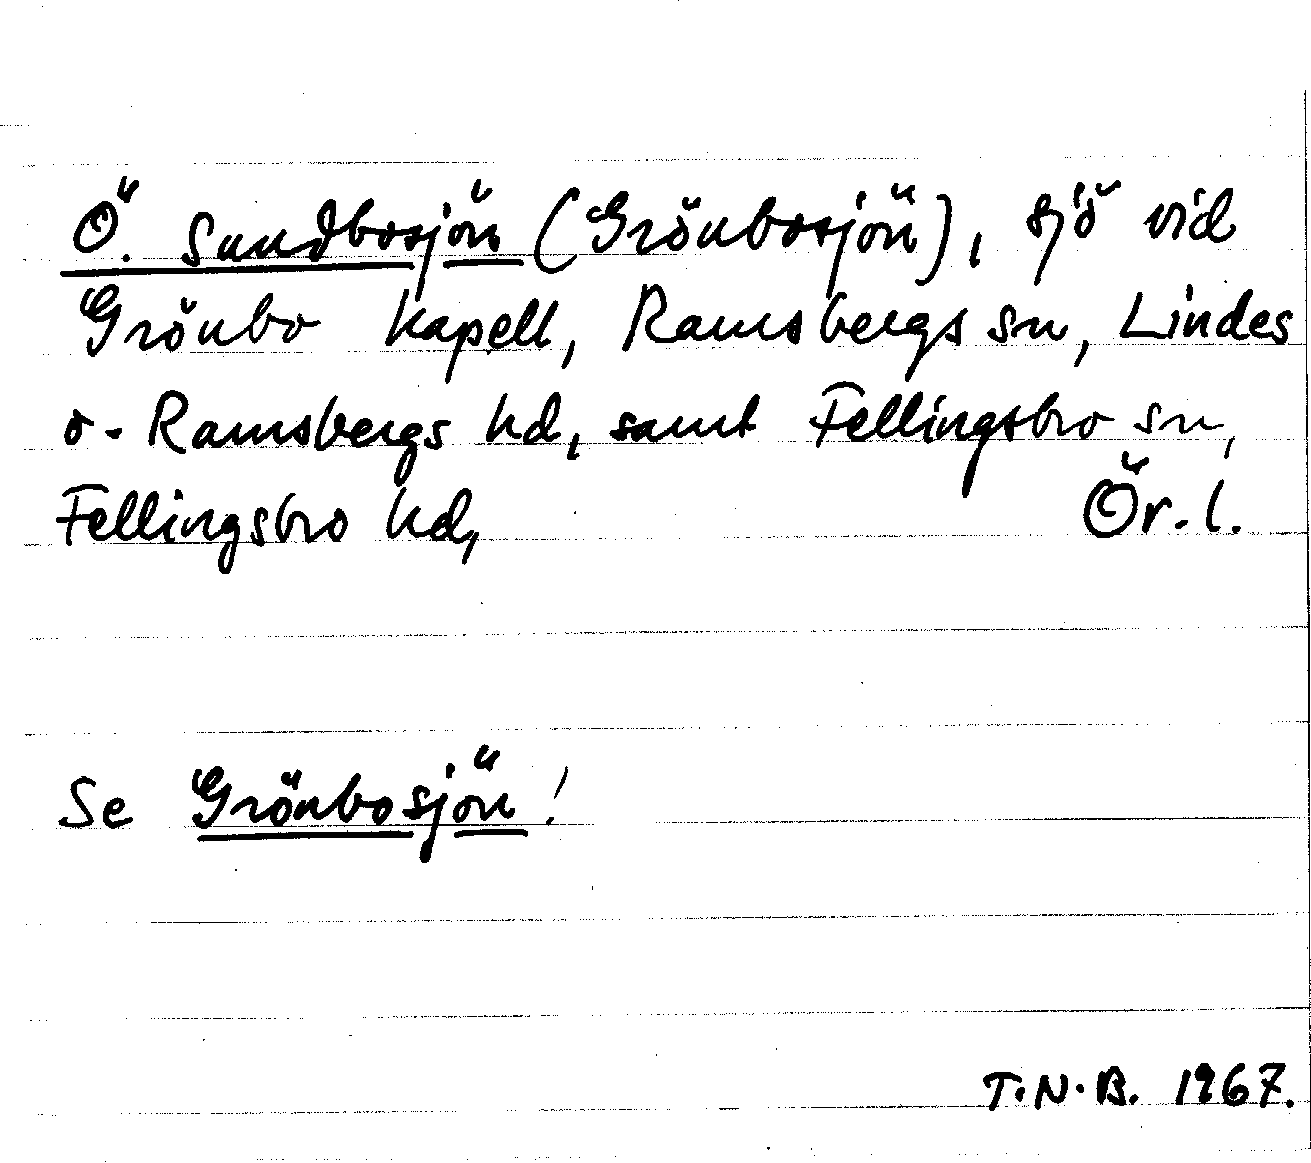 Ö. Sundbosjön (Grönbosjön), sjö vid
Grönbo kapell, Ramsbergs sn, Lindes
o. Ramsbergs hd, samt Fellingsbro sn,
Fellingsbro hd, Ör. l.
Se Grönbosjön!
T.N.B. 1967.